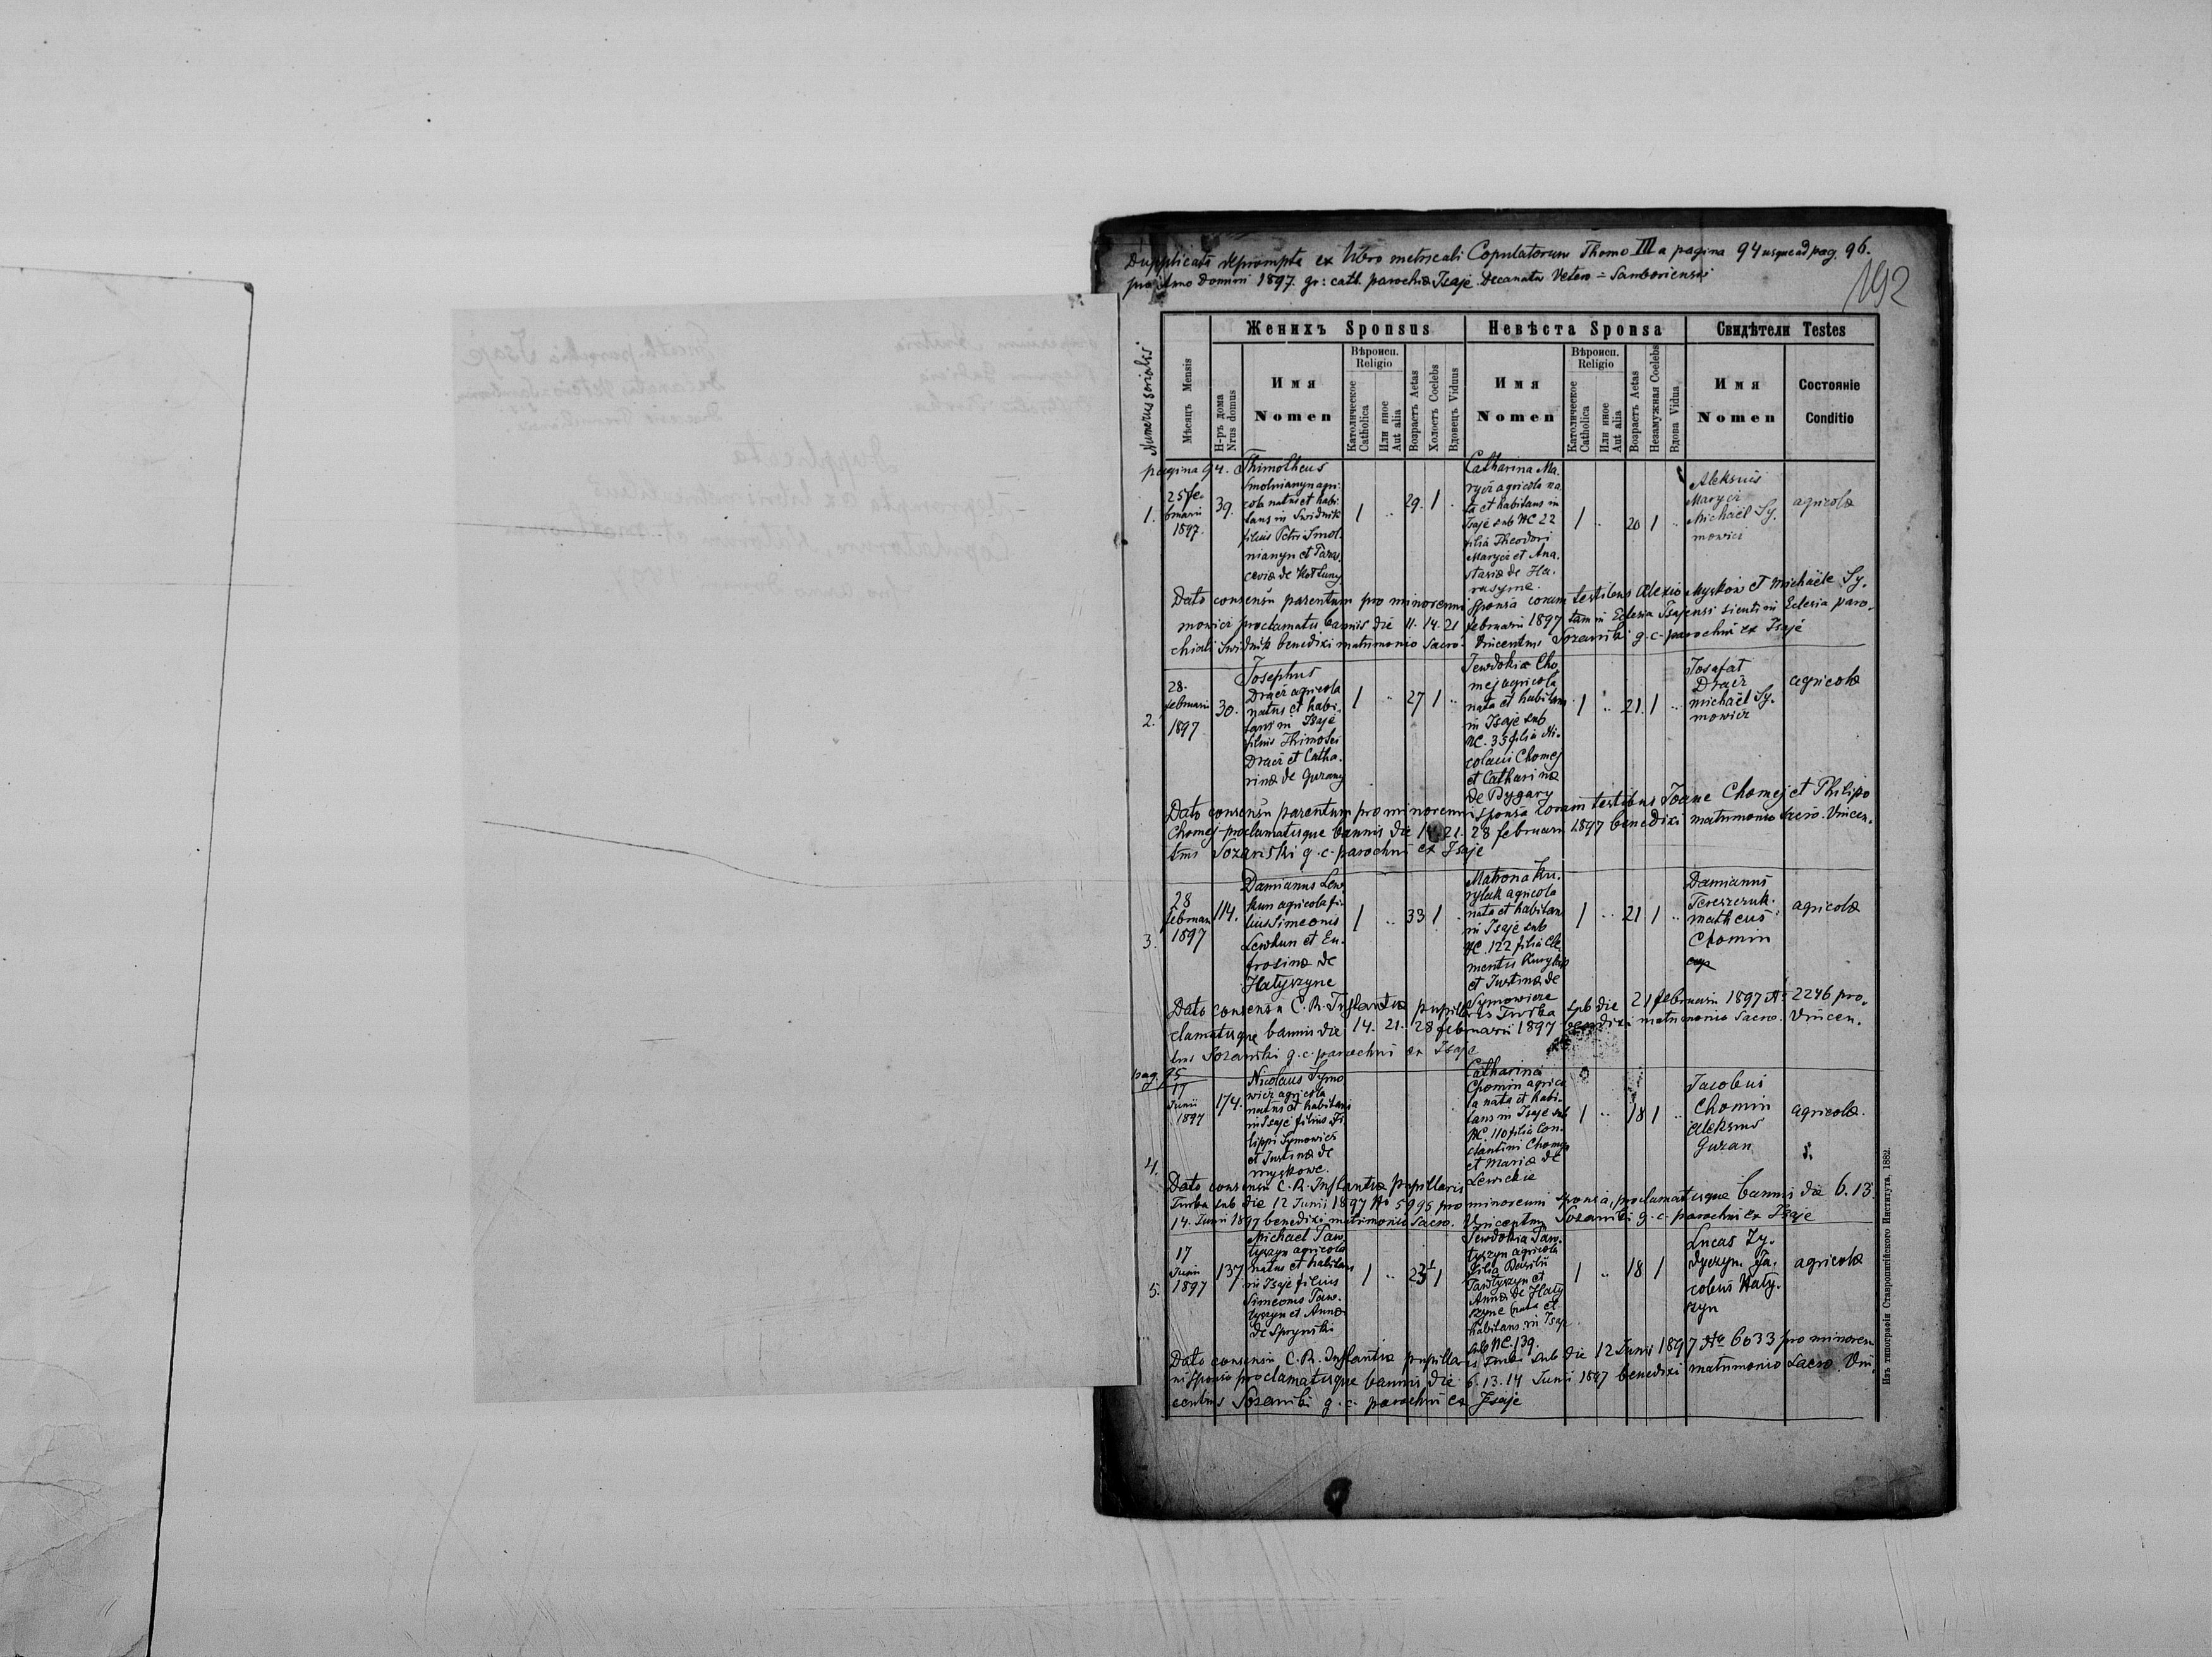 Dupplicata deprompta ex libro metricali Copulatorum Thomo III a pagina 94 usque ad pag. 96.
pro Anno Domini 1897. gr: cath. parochiæ Isaje Decanatus Vetero = Samboriensis
192
Numerus serialis
Мѣсяцъ Mensis
Женихъ Sponsus
Невѣста Sponsa
Свидѣтели Testes
Н-ръ дома
Nrus domus
Имя
Nomen
Вѣроисп.
Religio
Католическое
Catholica
Или иное
Aut alia
Возрастъ Aetas
Холостъ Coelebs
Вдовецъ Viduus
Имя
Nomen
Вѣроисп.
Religio
Католическое
Catholica
Или иное
Aut alia
Возрастъ Aetas
Незамужная Coelebs
Вдова Vidua
Имя
Nomen
Состояніе
Conditio
pagina 94.
1.
25 fe-
bruarii
1897.
39.
Thimotheus
Smolnianyn agri-
cola natus et habi-
tans in Swidnik
filius Petri Smol-
nianyn et Paras
ceviæ de Kotluny
1
..
29.
1
..
Catharina Ma-
rycz agricola na-
ta et habitans in
Isaje sub NC 22
filia Theodori
Marycz et Ana-
stasiæ de Ha-
rasyme
1
..
20
1
..
Aleksius
Marycz
Michaël Sy-
mowicz
agricolæ
Dato consensu parentum pro minorenni sponsa coram testibus Alexio Myskow et Michaële Sy-
mowicz proclamatis bannis die 11. 14. 21 februarii 1897 tam in Eclesia Isajensi sicuti in Eclesia paro-
chiali Swidnik benedixi matrimonio sacro. Vincentius Sozański g. c. parochus ex Isaje
2.
28.
februarii
1897
30.
Josephus
Dracz agricola
natus et habi-
tans in Isaje
filius Thimotei
Dracz et Catha-
rinæ de Guzany
1
..
27
1
..
Jewdokia Cho-
mej agricola
nata et habitans
in Isaje sub
NC. 33 filia Ni-
colaii Chomej
et Catharinæ
de Dygary
1
..
21.
1
..
Josafat
Dracz
Michaël Sy-
mowicz
agricolæ
Dato consensu parentum pro minorenni sponsa coram testibus Joane Chomej et Philipo
Chomej proclamatisque bannis die 14. 21. 28 februarii 1897 benedixi matrimonio sacro. Vincen-
tius Sozański g. c. parochus ex Isaje
3.
28
februarii
1897
114.
Damianus Lew
kun agricola fi-
lius Simeonis
Lewkun et Eu-
frosinæ de
Hatyszyne
1
..
33
1
..
Matrona Ku-
rylak agricola
nata et habitans
in Isaje sub
NC. 122 filia Cle
mentis Kurylak
et Justinæ de
Symowicze
1
..
21
1
..
Damianus
Tereszczuk.
Matheus
Chomin
agricolæ
Dato consensu C. R. Instantiæ pupillaris Turka sub die 21 februarii 1897 No 2246 pro-
clamatisque bannis die 14. 21. 28 februarii 1897 benedixi matrimonio sacro. Vincen-
tius Sozański g. c. parochus ex Isaje
pag. 95
4.
17
Junii
1897
174.
Nicolaus Symo
wicz agricola
natus et habitans
in Isaje filius Fi
lippi Symowicz
et Justinæ de
Myskowe.
Catharina
Chomin agrico
la nata et habi-
tans in Isaje sub
NC. 110 filia Con-
stantini Chomin
et Mariæ de
Lewickie
1
..
18
1
..
Jacobus
Chomin
Aleksius
Guzan
agricolæ.
Dato consensu C. R. Instantiæ pupillaris
Turka sub die 12 Junii 1897 No 5995 pro minorenni sponsa, proclamatisque bannis die 6. 13.
14. Junii 1897 benedixi matrimonio sacro. Vincentius Sozański g. c. parochus ex Isaje
5.
17
Junii
1897
137
Michael Paw
tyszyn agricola
natus et habitans
in Isaje filius
Simeonis Paw-
tyszyn et Annæ
de Sprynski
1
..
23
1
Jewdokia Paw-
tyszyn agricola
filia Basilii
Pawtyszyn et
Annæ de Haty
szyne nata et
habitans in Isaje
sub NC. 139.
1
..
18
1
Lucas Zy-
dyczyn. Ja-
cobus Haty-
szyn
agricolæ
Dato consensu C. R. Instantiæ pupillaris Turka sub die 12 Junii 1897 No 6033 pro minoren
ni sponsa proclamatisque bannis die 6. 13. 14 Junii 1897 benedixi matrimonio sacro. Vin-
centius Sozański g. c. parochus ex Isaje
Изъ типографіи Ставропигійского Института. 1882.